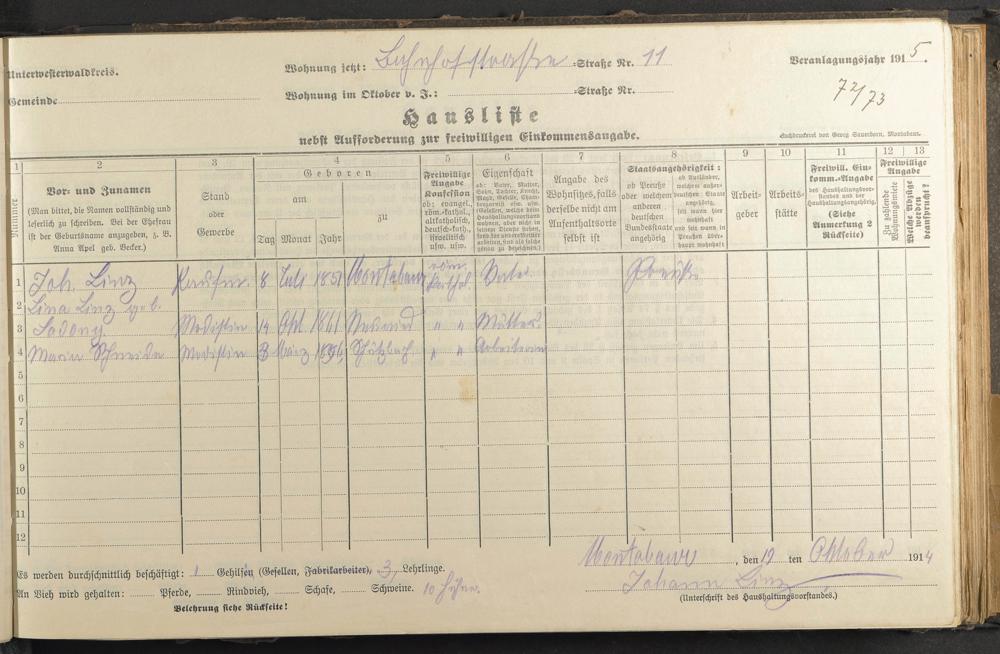 Unterwesterwaldkreis.
Wohnung jetzt: Bahnhofstrasse -Straße Nr. 11
Veranlagungsjahr 1915.
Gemeinde
Wohnung im Oktober v. J.: -Straße Nr.
72/73
Hausliste
nebst Aufforderung zur freiwilligen Einkommensangabe.
Buchdruckerei von Georg Sauerborn, Montabaur.
1 2 3 4 5 6 7 8 9 10 11 12 13
Nummer
Vor- und Zunamen
(Man bittet, die Namen vollständig und
leserlich zu schreiben. Bei der Ehefrau
ist der Geburtsname anzugeben, z. B.
Anna Apel geb. Becker.)
Stand
oder
Gewerbe
Geboren
am
zu
Tag Monat Jahr
Freiwillige
Angabe
Konfession
ob: evangel.,
röm.-kathol.,
altkatholisch,
deutsch-kath.,
israelitisch
usw. usw.
Eigenschaft
ob: Vater, Mutter,
Sohn, Tochter, Knecht,
Magd, Geselle,
Angabe des
Wohnsitzes, falls
derselbe nicht am
Aufenthaltsorte
selbst ist
Staatsangehörigkeit:
ob Preuße
oder welchem
anderen
deutschen
Bundesstaate
angehörig
ob Ausländer,
welchem außer-
deutschen Staate
angehörig,
seit wann hier
wohnhaft
und seit wann in
Preußen über-
haupt wohnhaft
Arbeit-
geber
Arbeits-
stätte
Freiwill. Ein-
komm.-Angabe
des Haushaltungsvor-
standes und der
Haushaltungsangehörig.
(Siehe
Anmerkung 2
Rückseite)
Freiwillige
Angabe
Zu zahlende
Wohnungsmiete
Welche Abzüge
werden
beansprucht?
1 Joh. Linz Kaufm. 8 Juli 1851 Montabaur röm. kathol. Vater Preuße
2 Lina Linz geb.
3 Modistin 14 Okt. Neuwied " " Mutter
4 Maria Schneider Modistin 3 März " " Arbeiterin
5
6
7
8
9
10
11
12
Es werden durchschnittlich beschäftigt: 1 Gehilfen (Gesellen, Fabrikarbeiter), 3 Lehrlinge.
An Vieh wird gehalten: Pferde, Rindvieh, Schafe, Schweine. 10 Hühner.
Belehrung siehe Rückseite!
Montabaur, den 19 ten Oktober 1914
Johann Linz
(Unterschrift des Haushaltungsvorstandes.)